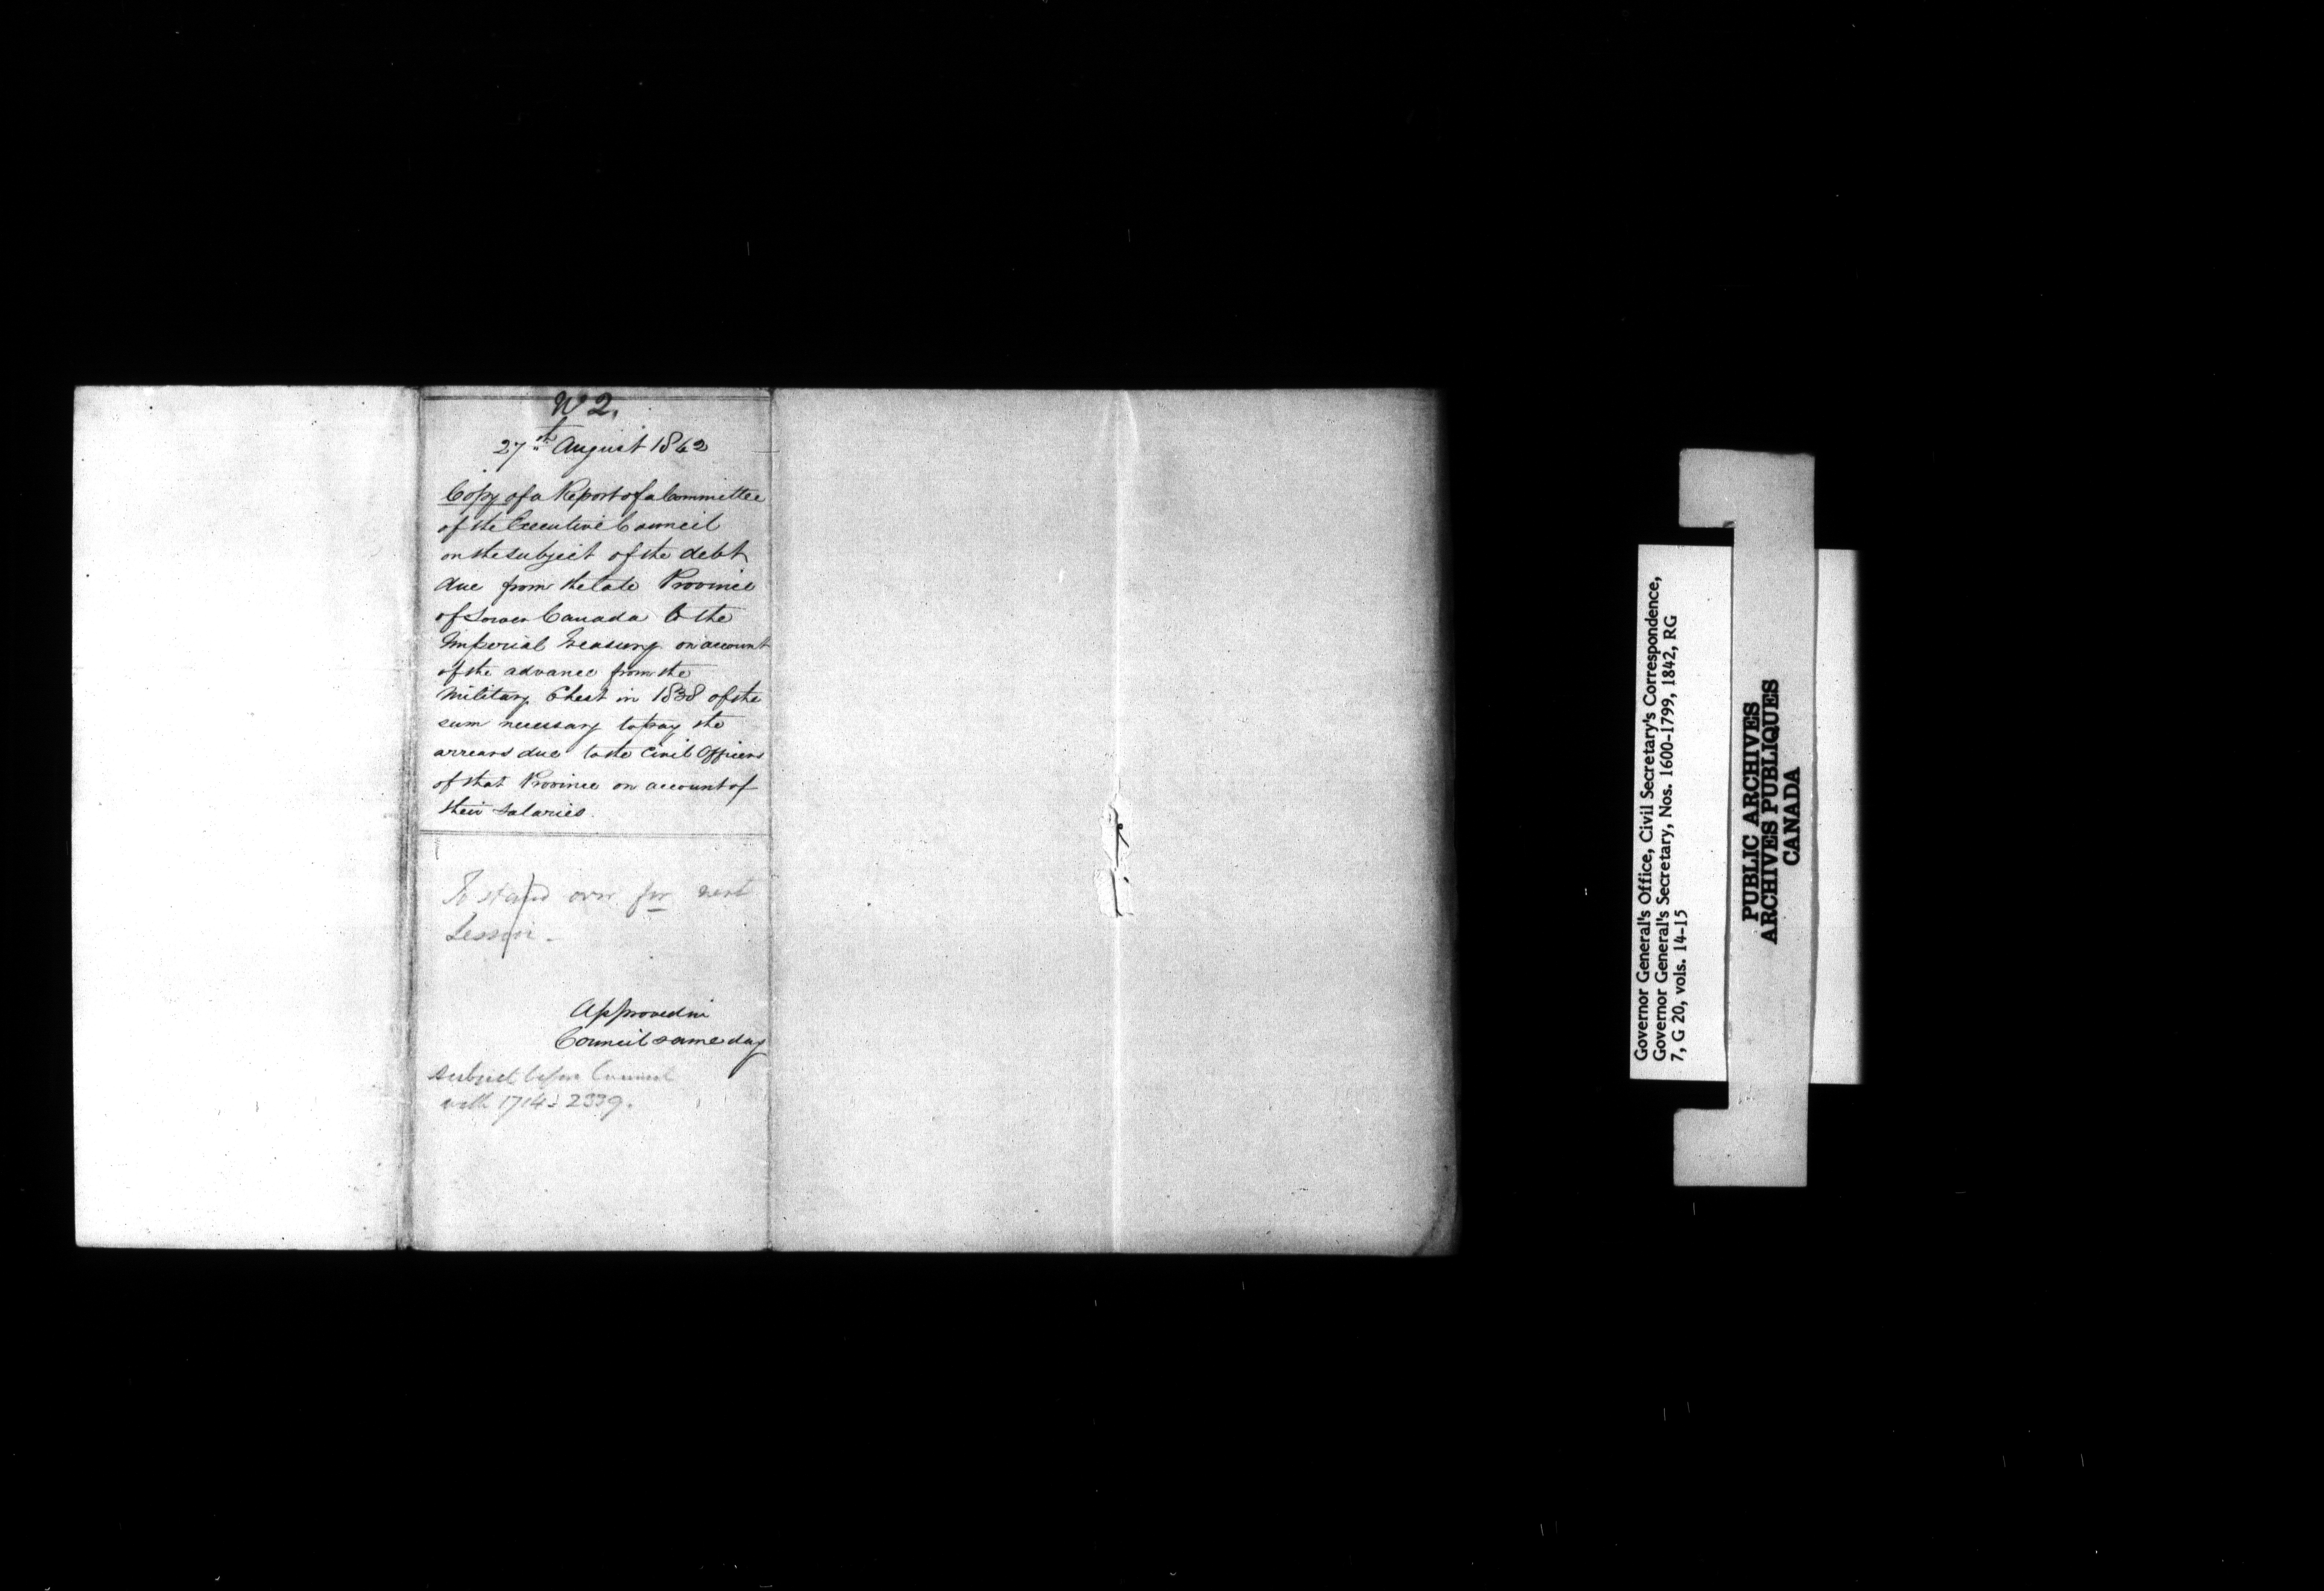 No 2.
27th August 1842
Copy of a Report of a Committee
of the Executive Council
on the subject of the debt
due from the late Province
of Lower Canada to the
Imperial Treasury on account
of the advance from the
Military Chest in 1838 of the
sum necessary to pay the
arrears due to the Civil Officers
of that Province on account of
their salaries.
To stand over for next
Session -
Approved in
Council same day
Subject before Council
with 1714 & 2339.
Governor General's Office, Civil Secretary's Correspondence,
Governor General's Secretary, Nos. 1600-1799, 1842, RG
7, G 20, vols. 14-15
PUBLIC ARCHIVES
ARCHIVES PUBLIQUES
CANADA